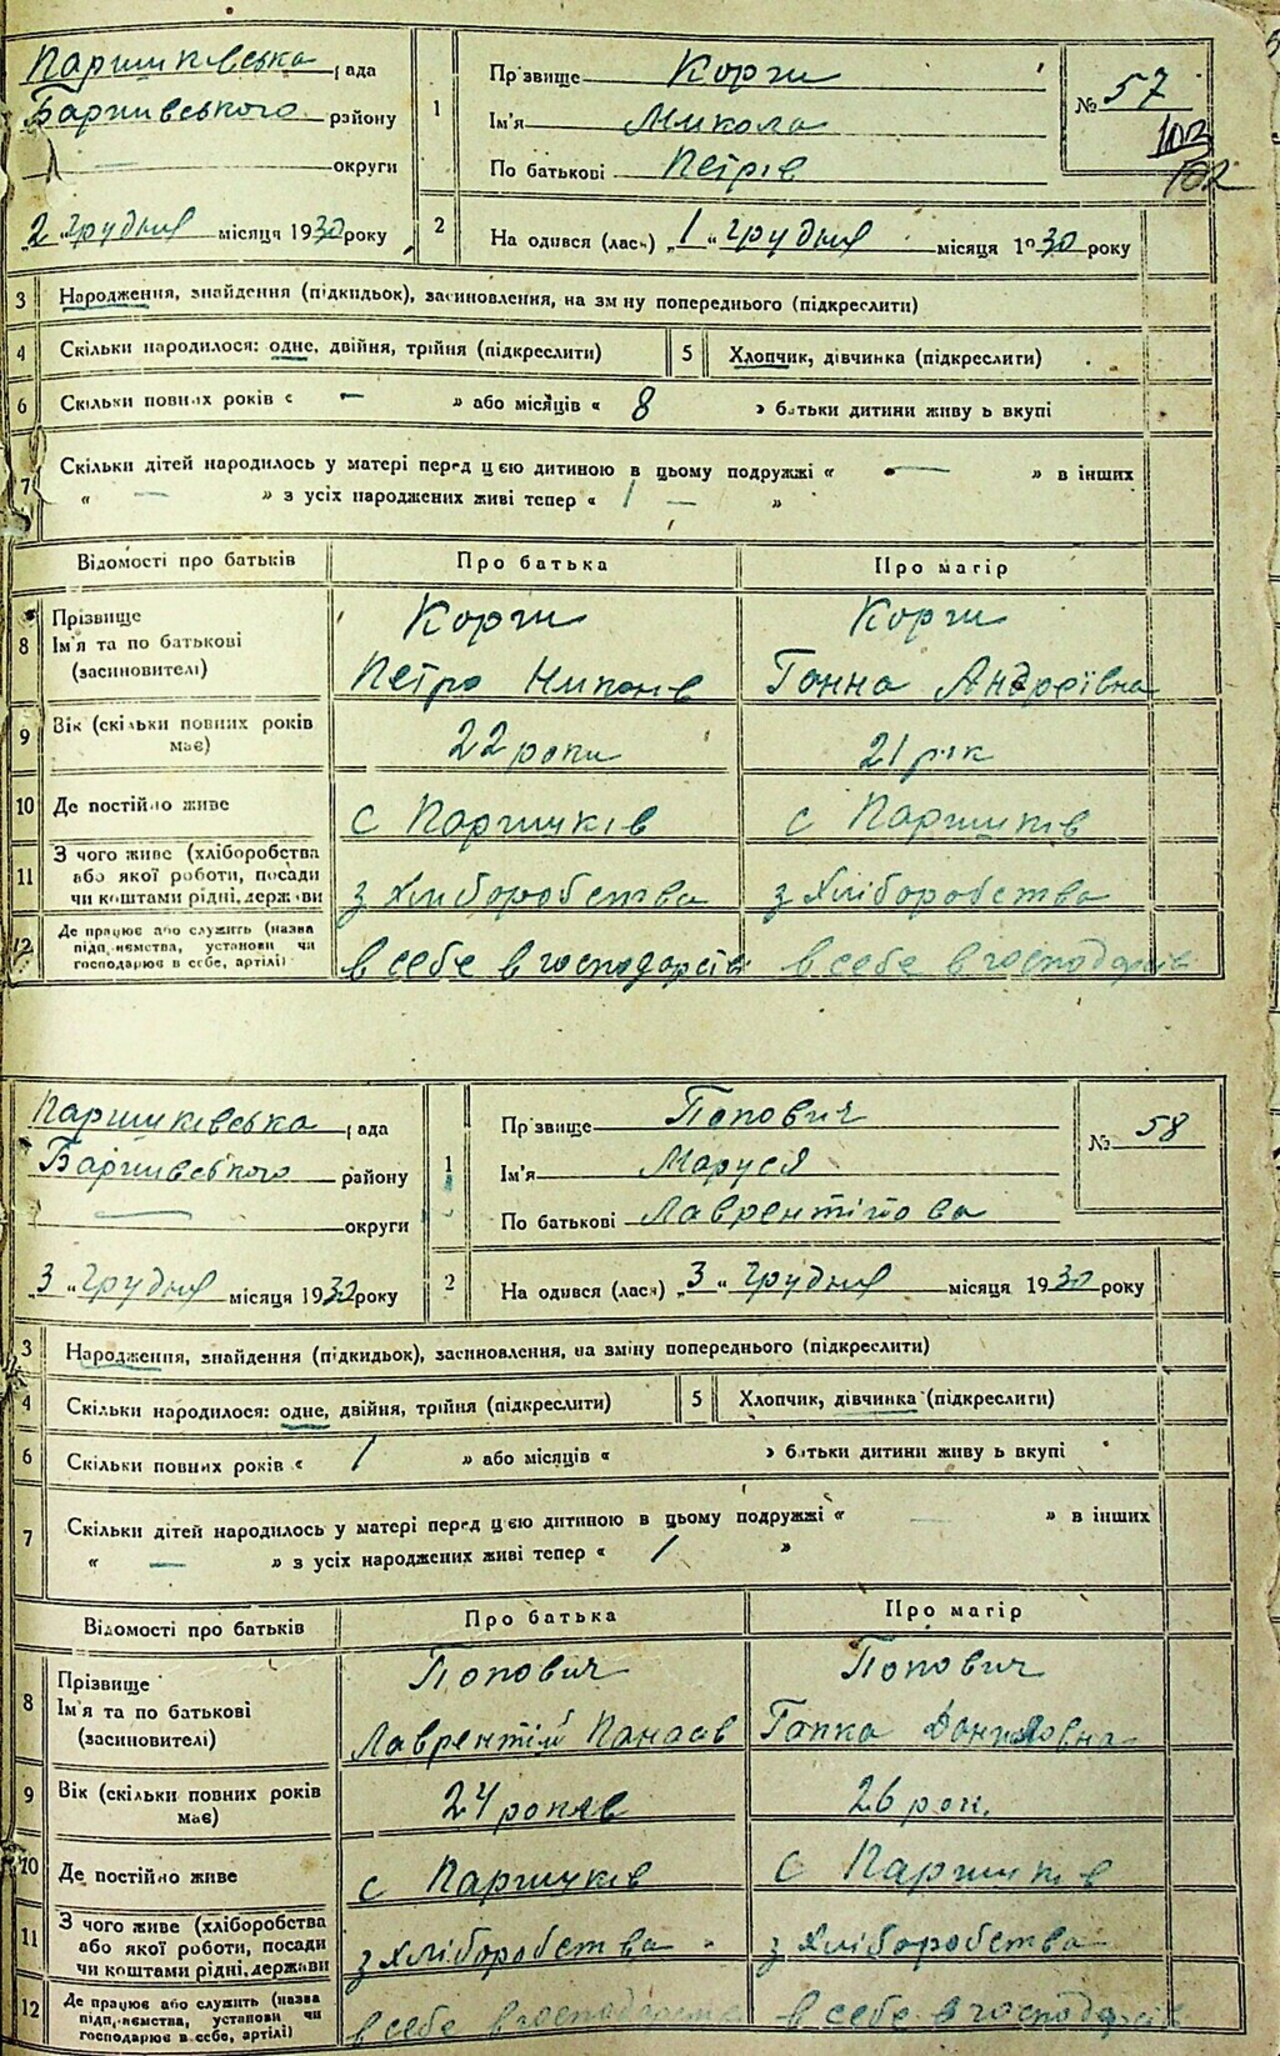 Паришківська рада
Баришівського району
— округи
„2“ грудня місяця 1930 року
1
Прізвище Корж
Ім'я Микола
По батькові Петрів
№ 57
103
102
2
На одився (лась) „1“ грудня місяця 1930 року
3 Народження, знайдення (підкидьок), засиновлення, на зміну попереднього (підкреслити)
4 Скільки народилося: одне, двійня, трійня (підкреслити) 5 Хлопчик, дівчинка (підкреслити)
6 Скільки повних років « — » або місяців « 8 » батьки дитини живуть вкупі
7 Скільки дітей народилось у матері перед цією дитиною в цьому подружжі « — » в інших
« — » з усіх народжених живі тепер « 1 — »
Відомості про батьків Про батька Про матір
8 Прізвище
Ім'я та по батькові
(засиновителі)
Корж
Петро Нипонів
Корж
Ганна Андреївна
9 Вік (скільки повних років має) 22 роки 21 рік
10 Де постійно живе с Паришків с Паришків
11 З чого живе (хліборобства
або якої роботи, посади
чи коштами рідні, держави
з Хліборобства з Хліборобства
12 Де працює або служить (назва
підприємства, установи чи
господарює в себе, артілі)
в себе в господарстві в себе в господарстві
Паришківська рада
Баришівського району
— округи
„3“ грудня місяця 1930 року
1
Прізвище Попович
Ім'я Маруся
По батькові Лаврентійова
№ 58
2
На одився (лась) „3“ грудня місяця 1930 року
3 Народження, знайдення (підкидьок), засиновлення, на зміну попереднього (підкреслити)
4 Скільки народилося: одне, двійня, трійня (підкреслити) 5 Хлопчик, дівчинка (підкреслити)
6 Скільки повних років « 1 » або місяців « » батьки дитини живуть вкупі
7 Скільки дітей народилось у матері перед цією дитиною в цьому подружжі « — » в інших
« — » з усіх народжених живі тепер « 1 »
Відомості про батьків Про батька Про матір
8 Прізвище
Ім'я та по батькові
(засиновителі)
Попович
Лаврентій Панасів
Попович
Гапка Даниловна
9 Вік (скільки повних років має) 24 років 26 рок.
10 Де постійно живе с Паришків с Паришків
11 З чого живе (хліборобства
або якої роботи, посади
чи коштами рідні, держави
з Хліборобства з Хліборобства
12 Де працює або служить (назва
підприємства, установи чи
господарює в себе, артілі)
в себе в господарстві в себе в господарстві